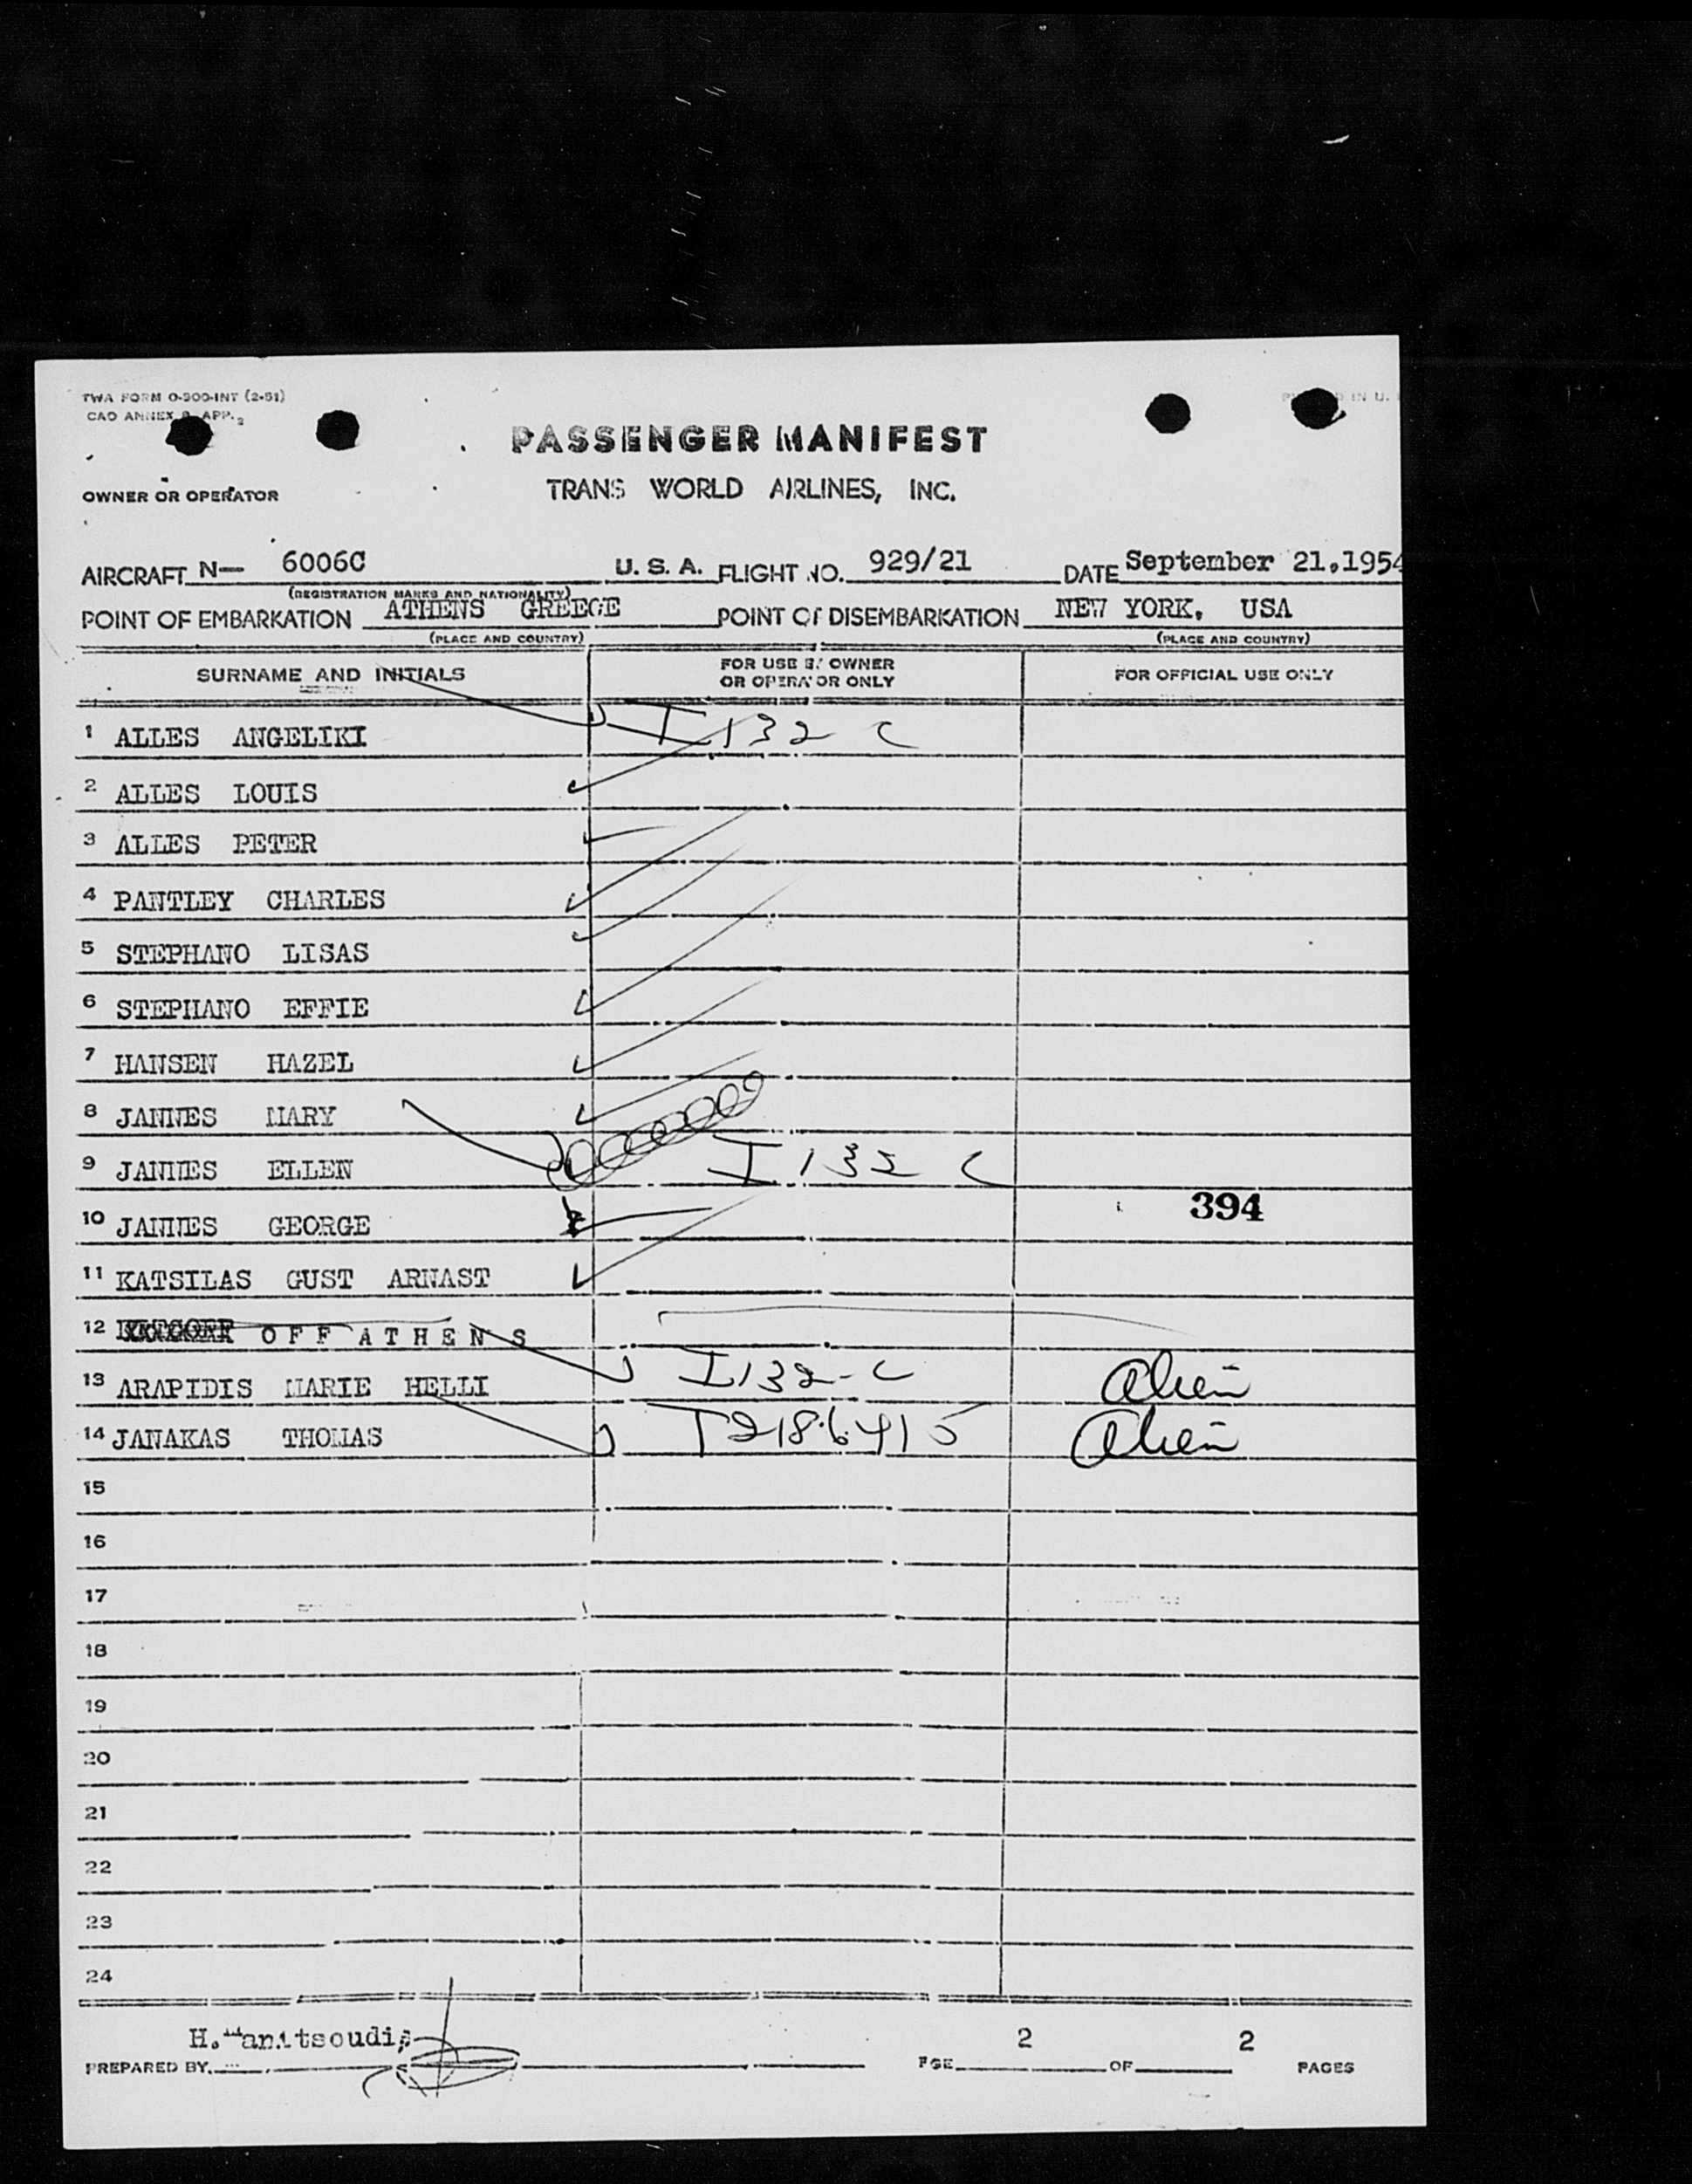 TWA FORM O-300-INT (2-51)
CAO ANNEX 9 APP. 2
IN U.
PASSENGER MANIFEST
OWNER OR OPERATOR TRANS WORLD AIRLINES, INC.
AIRCRAFT N— 6006C U. S. A. FLIGHT NO. 929/21 DATE September 21,1954
(REGISTRATION MARKS AND NATIONALITY)
POINT OF EMBARKATION ATHENS GREECE POINT OF DISEMBARKATION NEW YORK, USA
(PLACE AND COUNTRY) (PLACE AND COUNTRY)
SURNAME AND INITIALS FOR USE BY OWNER OR OPERATOR ONLY FOR OFFICIAL USE ONLY
1 ALLES ANGELIKI I 132 C
2 ALLES LOUIS
3 ALLES PETER
4 PANTLEY CHARLES
5 STEPHANO LISAS
6 STEPHANO EFFIE
7 HANSEN HAZEL
8 JANNES MARY
9 JANNES ELLEN I 132 C
394
10 JANNES GEORGE
11 KATSILAS GUST ARNAST
12 OFF ATHENS
13 ARAPIDIS MARIE HELLI I 132-C Alien
14 JANAKAS THOMAS T2186415 Alien
15
16
17
18
19
20
21
22
23
24
H. 2 2
PREPARED BY PGE OF PAGES